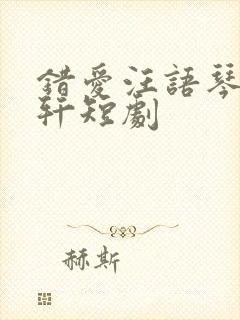 錯愛汪語琴
軒短劇
赫斯